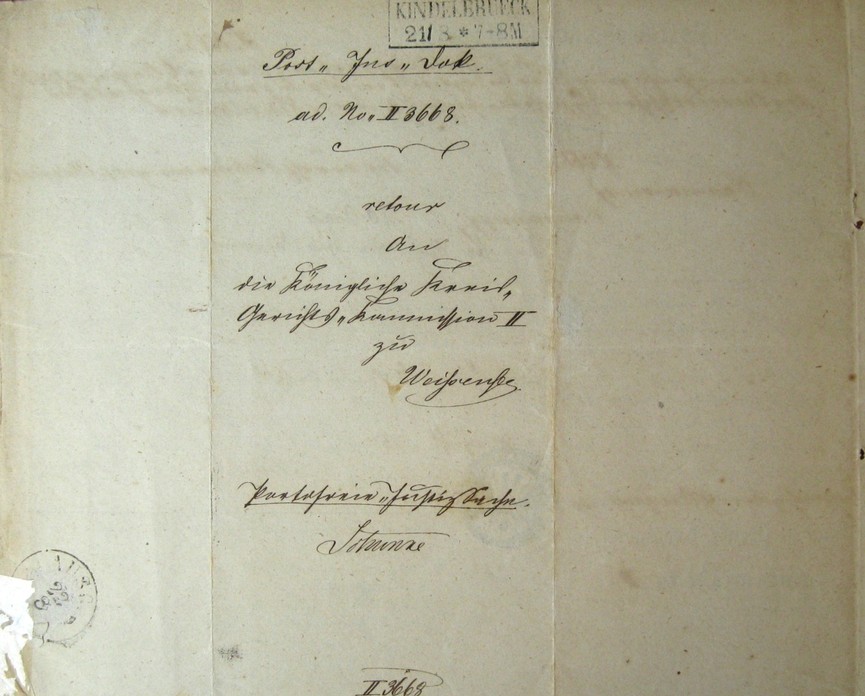 KINDELBRUECK
21/8 * 7-8M
Post„ Ins„ Dok.
ad. No„ II 3668.
retour
An
die Königliche Kreis„
Gerichts„ Kommission II
zu
Weißensee
portofreie „ Justiz Sache.
II 3668